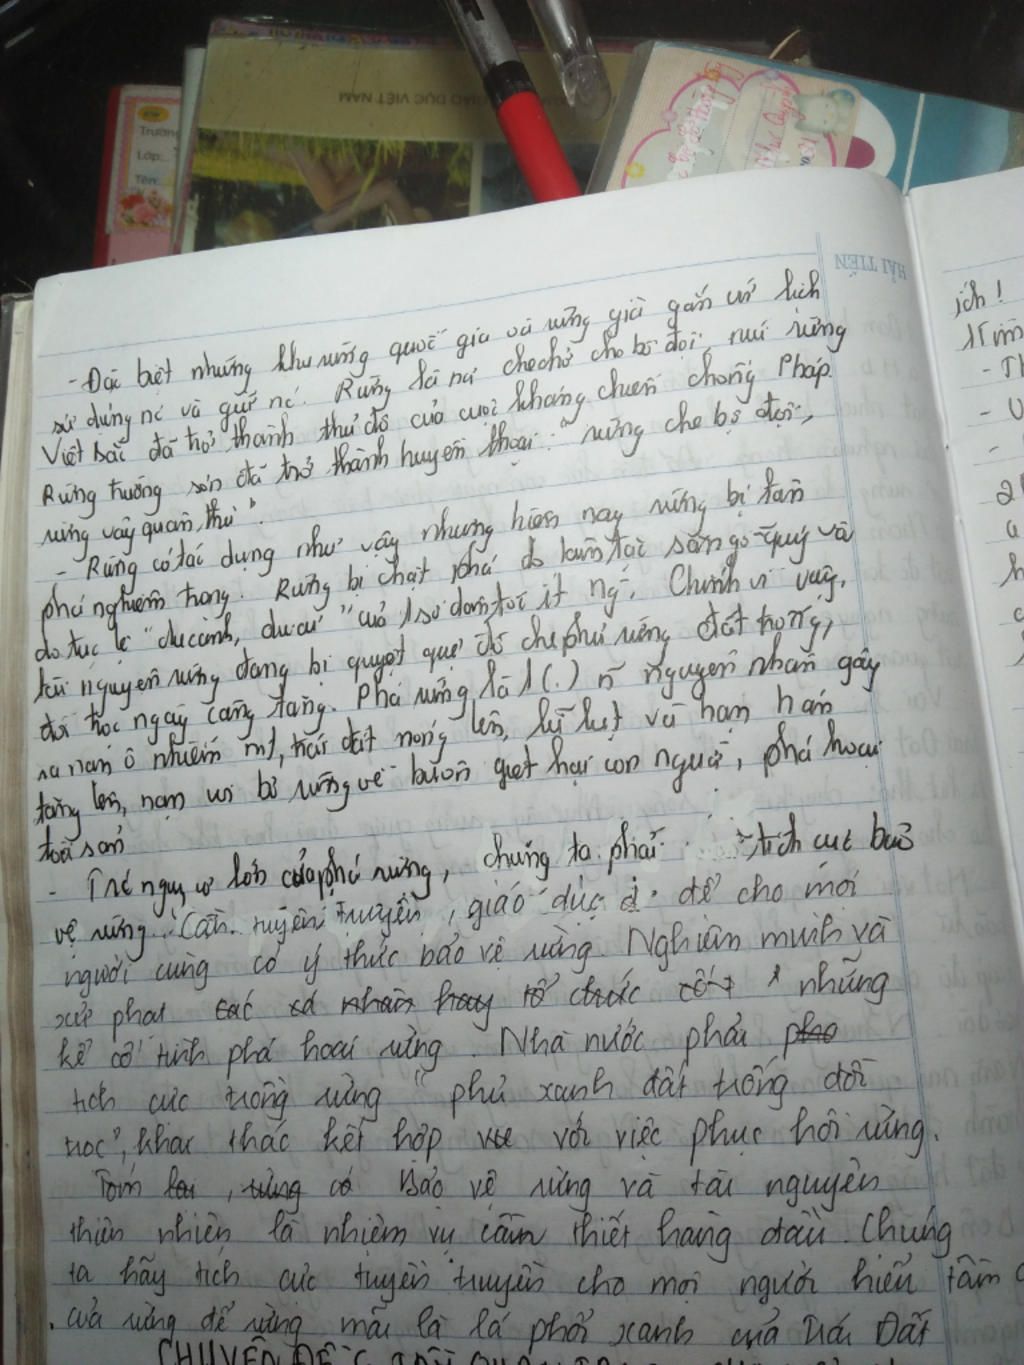 GIÁO DỤC VIỆT NAM
Trường
Lớp:
Tên:
HẢI TIẾN
- Đặc biệt những khu rừng quốc gia và rừng già gắn với lịch
sử dựng nc và giữ nc. Rừng là nơi che chở cho bộ đội. núi rừng
Việt Bắc đã trở thành thủ đô của cuộc kháng chiến chống Pháp.
Rừng trường sơn đã trở thành huyền thoại: "rừng che bộ đội,
rừng vây quân thù".
- Rừng có tác dụng như vậy nhưng hiện nay rừng bị tàn
phá nghiêm trọng. Rừng bị chặt phá do săn gỗ quý và
do tục lệ "du canh, du cư" của 1 số dân tôi ít ng. Chính vì vậy,
tài nguyên rừng đang bị quỵt quẹ đồ che phủ rừng đất trống,
đồi trọc ngày càng tăng. Phá rừng là 1 (.) n nguyên nhân gây
ra nạn ô nhiễm mt, trái đất nóng lên, lũ lụt và hạn hán
tăng lên, nạn voi bỏ rừng về buôn giết hại con người, phá hoại
toà sản
- Trc nguy cơ lớn của phá rừng, chúng ta phải tích cực bảo
vệ rừng. Cần tuyên truyền, giáo dục để cho mọi
người cùng có ý thức bảo vệ rừng. Nghiêm minh và
xử phạt các cá nhân hay tổ chức cố t những
kẻ cố tình phá hoại rừng. Nhà nước phải pho
tích cực trồng rừng "phủ xanh đất trống đồi
trọc", khai thác kết hợp với việc phục hồi rừng.
Tóm lại, rừng có Bảo vệ rừng và tài nguyên
thiên nhiên là nhiệm vụ cần thiết hàng đầu. Chúng
ta hãy tích cực tuyên truyền cho mọi người hiểu tầm
của rừng để rừng mãi là lá phổi xanh của Trái Đất
CHUYÊN ĐỀ
ích!
- Th